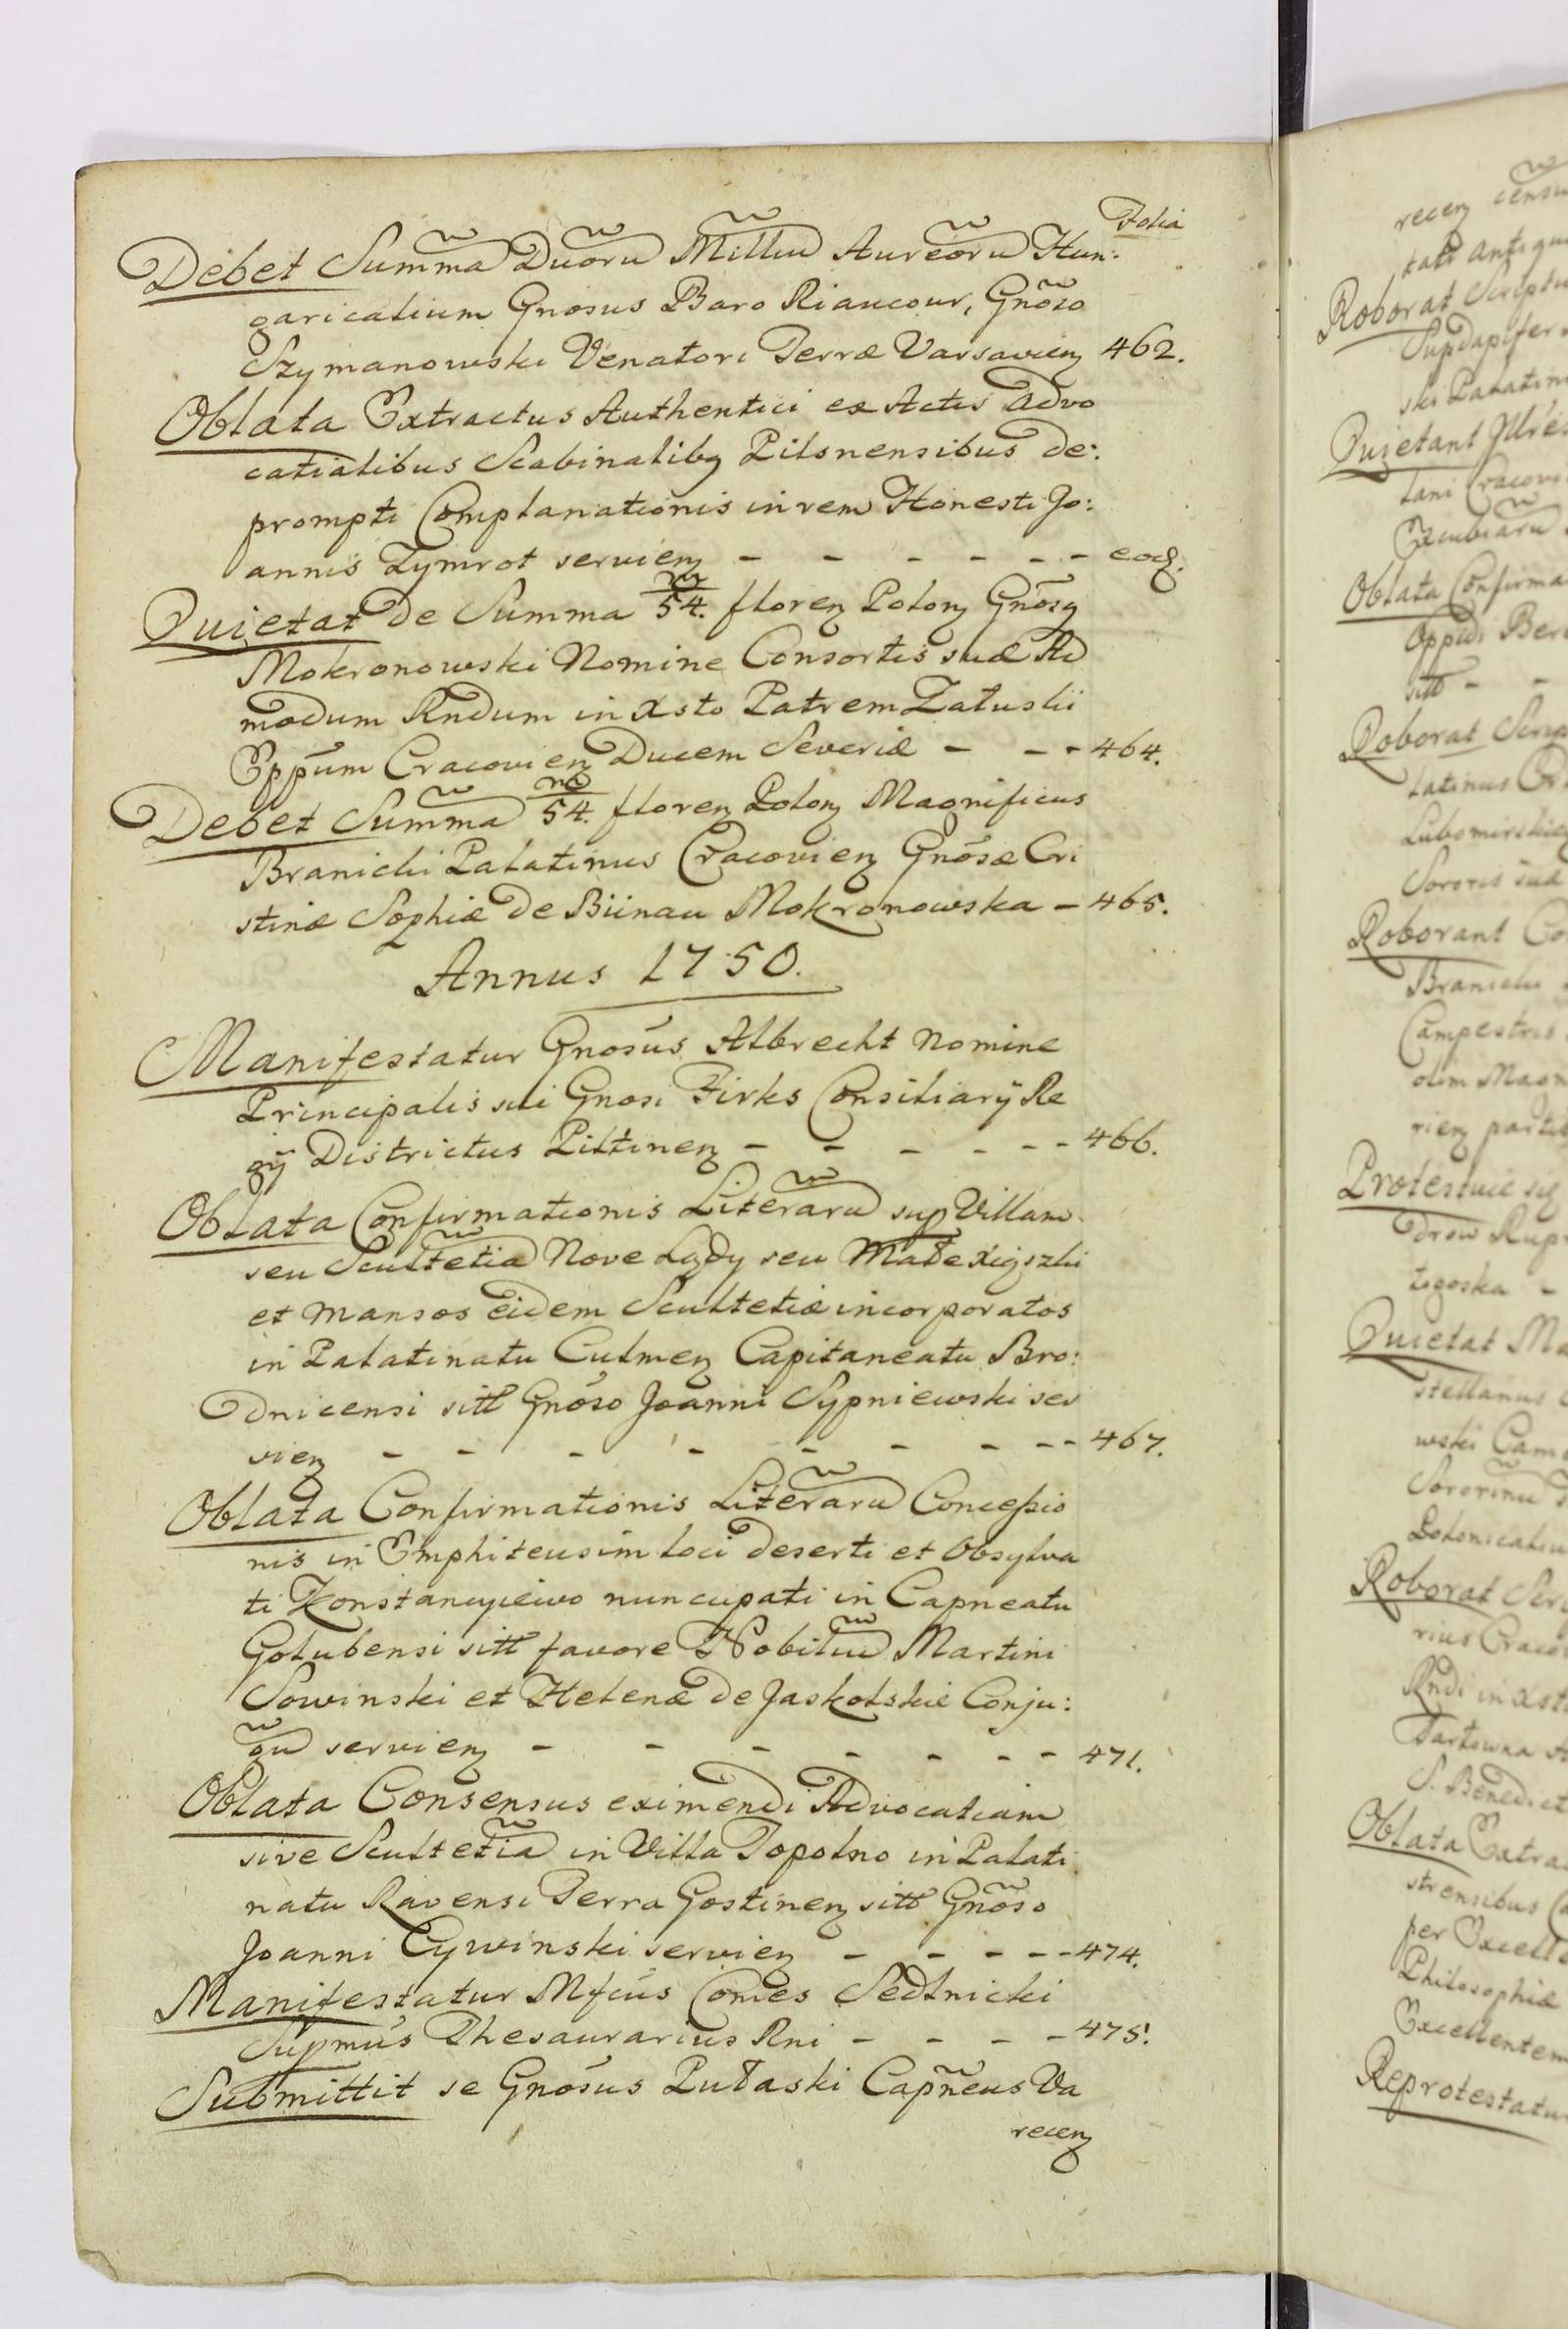 Folia
Debet Summã Duorũ Milliũ Aureorũ Hun:
garicalium Gnosus Baro Riaucour, Gnõso
Szymanowski Venatori Terræ Varsavien 462.
Oblata Extractus Authentici ex Actis Advo
catialibus Scabinalibq Pilsnensibus de:
prompti Complanationis in rem Honesti Jo:
annis Zymrot servien - - - - - - eod.
Quietat de Summa 54. floren Polon Gnõsq
Mokronowski Nomine Consortis suæ Ad
modum Rndum in Xsto Patrem Załuskii
Eppum Cracovien Ducem Severiæ - - - 464.
Debet Summã 54. floren Polon Magnificus
Branicki Palatinus Cracovien Gnosæ Cri
stinæ Sophiæ de Biinau Mokronowska - 465.
Annus 1750.
Manifestatur Gnosus Albrecht Nomine
Principalis sui Gnosi Firks Consiliarÿ Re
gÿ Districtus Piltinen - - - - - - 466.
Oblata Confirmationis Literarũ sup Villam
seu Scultetiã Nove Lądy seu Małe Xiąszki
et Mansos eidem Scultetiæ incorporatos
in Palatinatu Culmen Capitaneatu Bro:
dnicensi sitt Gnoso Joanni Sypniewski ser
vien - - - - - - - - - 467.
Oblata Confirmationis Literarũ Conceßio
nis in Emphiteusim loci deserti et Obsylva
ti Konstancyiewo nuncupati in Capneatu
Golubensi sitt favore Nobiliũ Martini
Sowinski et Helenæ de Jaskolskie Conju:
gũ servien - - - - - - - 471.
Oblata Consensus eximendi Advocatiam
sive Scultetiã in Villa Topolno in Palati
natu Ravensi Terra Gostinen sitt Gnõso
Joanni Cywinski servien - - - - - 474.
Manifestatur Mfcus Comes Sedlnicki
Supmus Thesaurarius Rni - - - - 475.
Submittit se Gnosus Pułaski Capñeus Va
recen
recen
tati antiqui
Roborat Scriptu
Supdapifer
ski Palatin
Quietant Jllres
lani Cracovi
Excubiarũ
Oblata Confirma
Oppidi Ber
sitt - -
Roborat Scrip
latinus Cr
Lubomirski
Sororis suæ
Roborant Co
Branicki
Campestris
olim Magn
rien partib
Protestuie się
drow Rup
togoska -
Quietat Ma
stellanus
wski Cam
Sororinũ
Polonicaliu
Roborat Scri
rius Craco
Rndi in Xsto
Tartowna
S. Benedict
Oblata Extra
strensibus
per Excelle
Philosophiæ
Excellentem
Reprotestatur